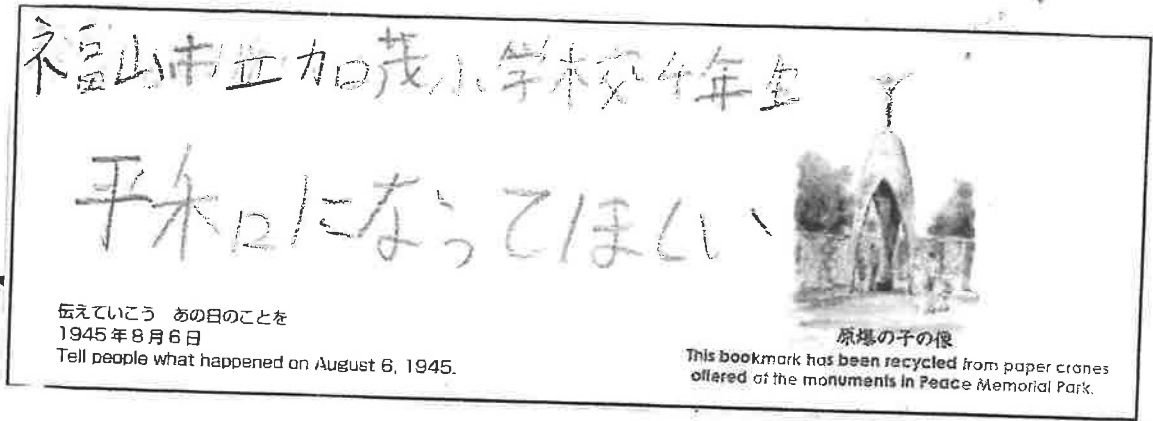 福山市立加茂小学校4年生
平和になってほしい
伝えていこう あの日のことを
1945年8月6日
Tell people what happened on August 6, 1945.
原爆の子の像
This bookmark has been recycled from paper cranes
offered at the monuments in Peace Memorial Park.